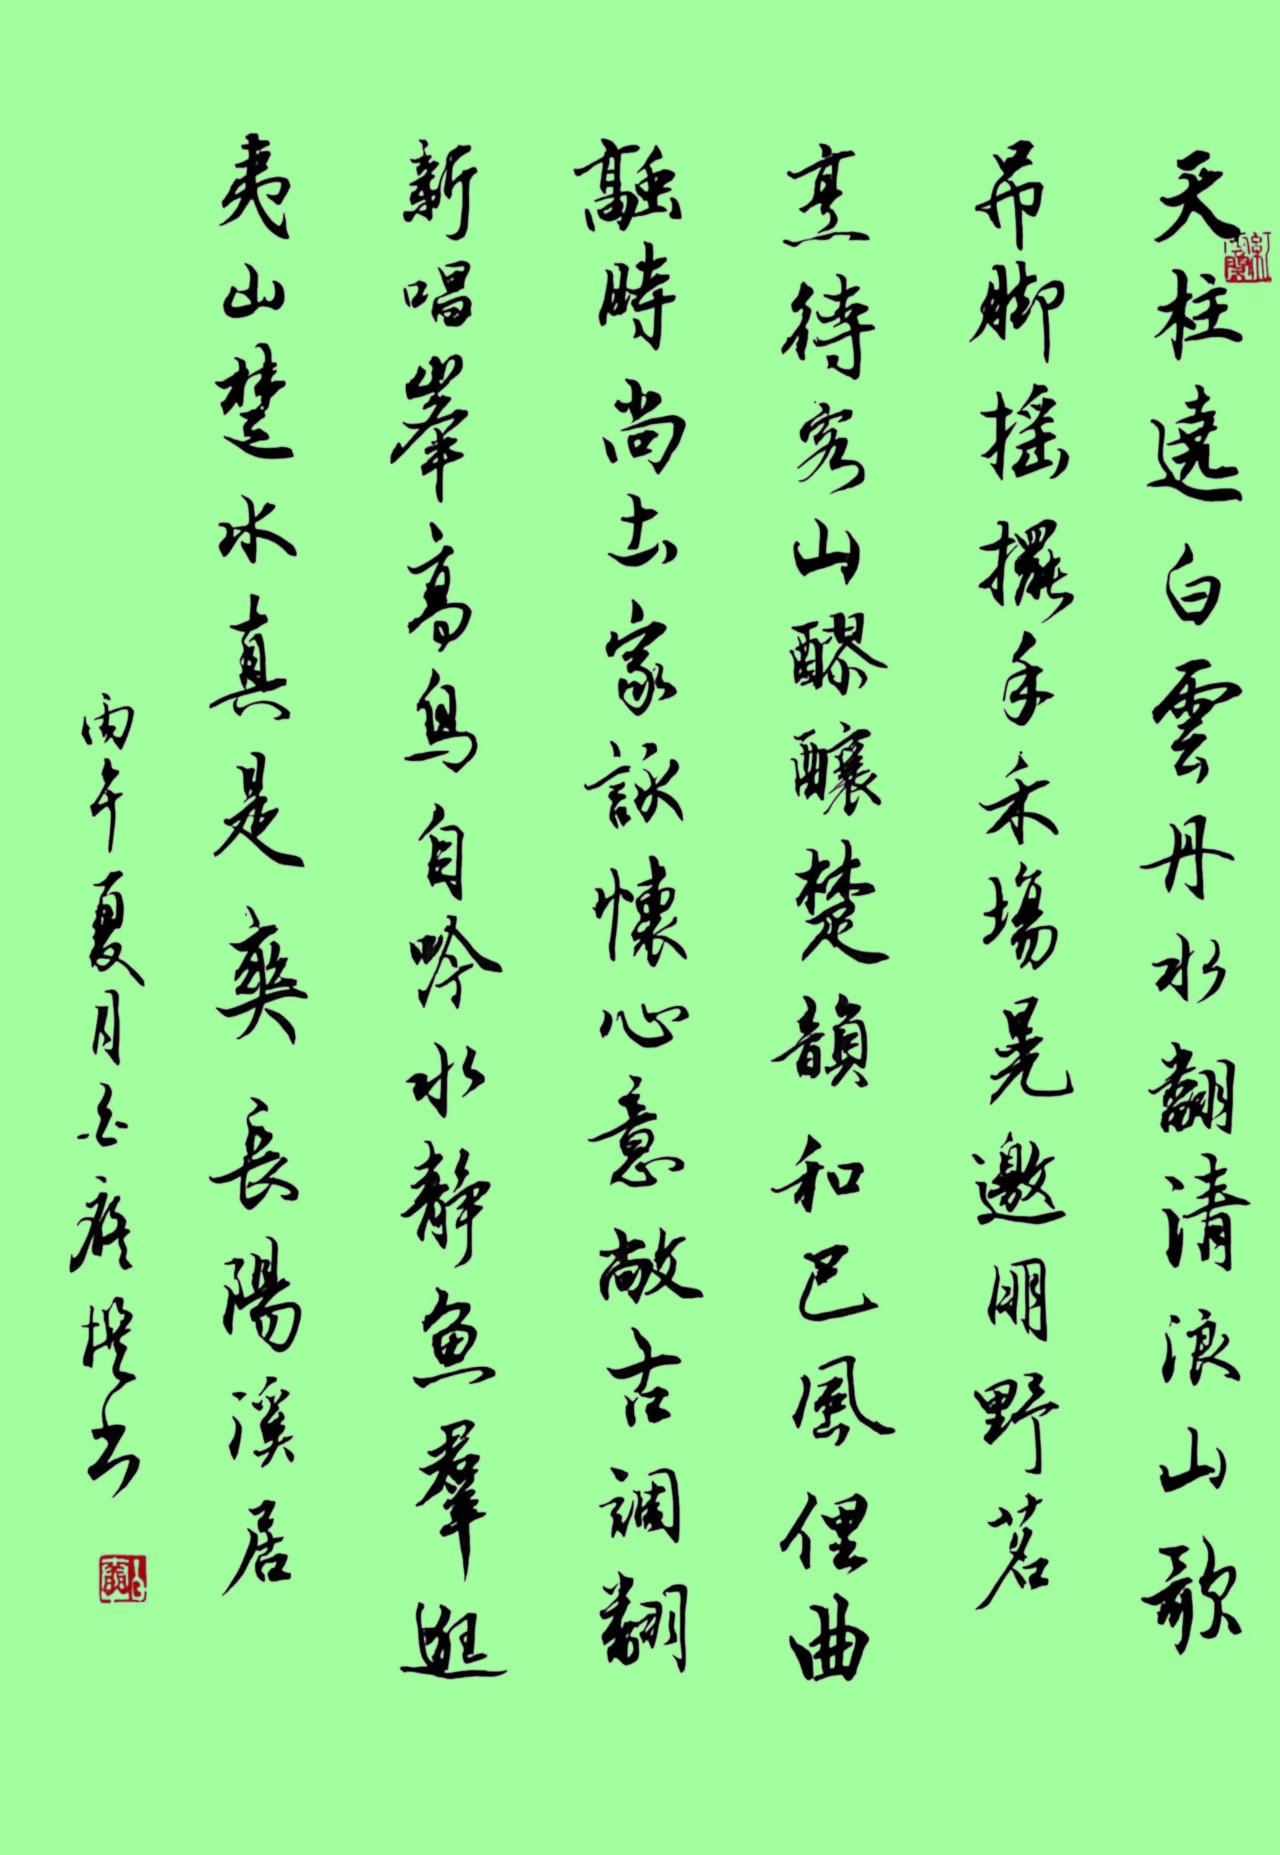 天柱遶白雲丹水翻清浪山歌
吊脚摇擺手禾場晃邀朋野茗
烹待客山醪釀楚韻和巴風俚曲
融時尚土家詠懷心意敞古調翻
新唱峯高鳥自吟水静魚羣逛
夷山楚水真是爽長陽溪居
丙午夏月